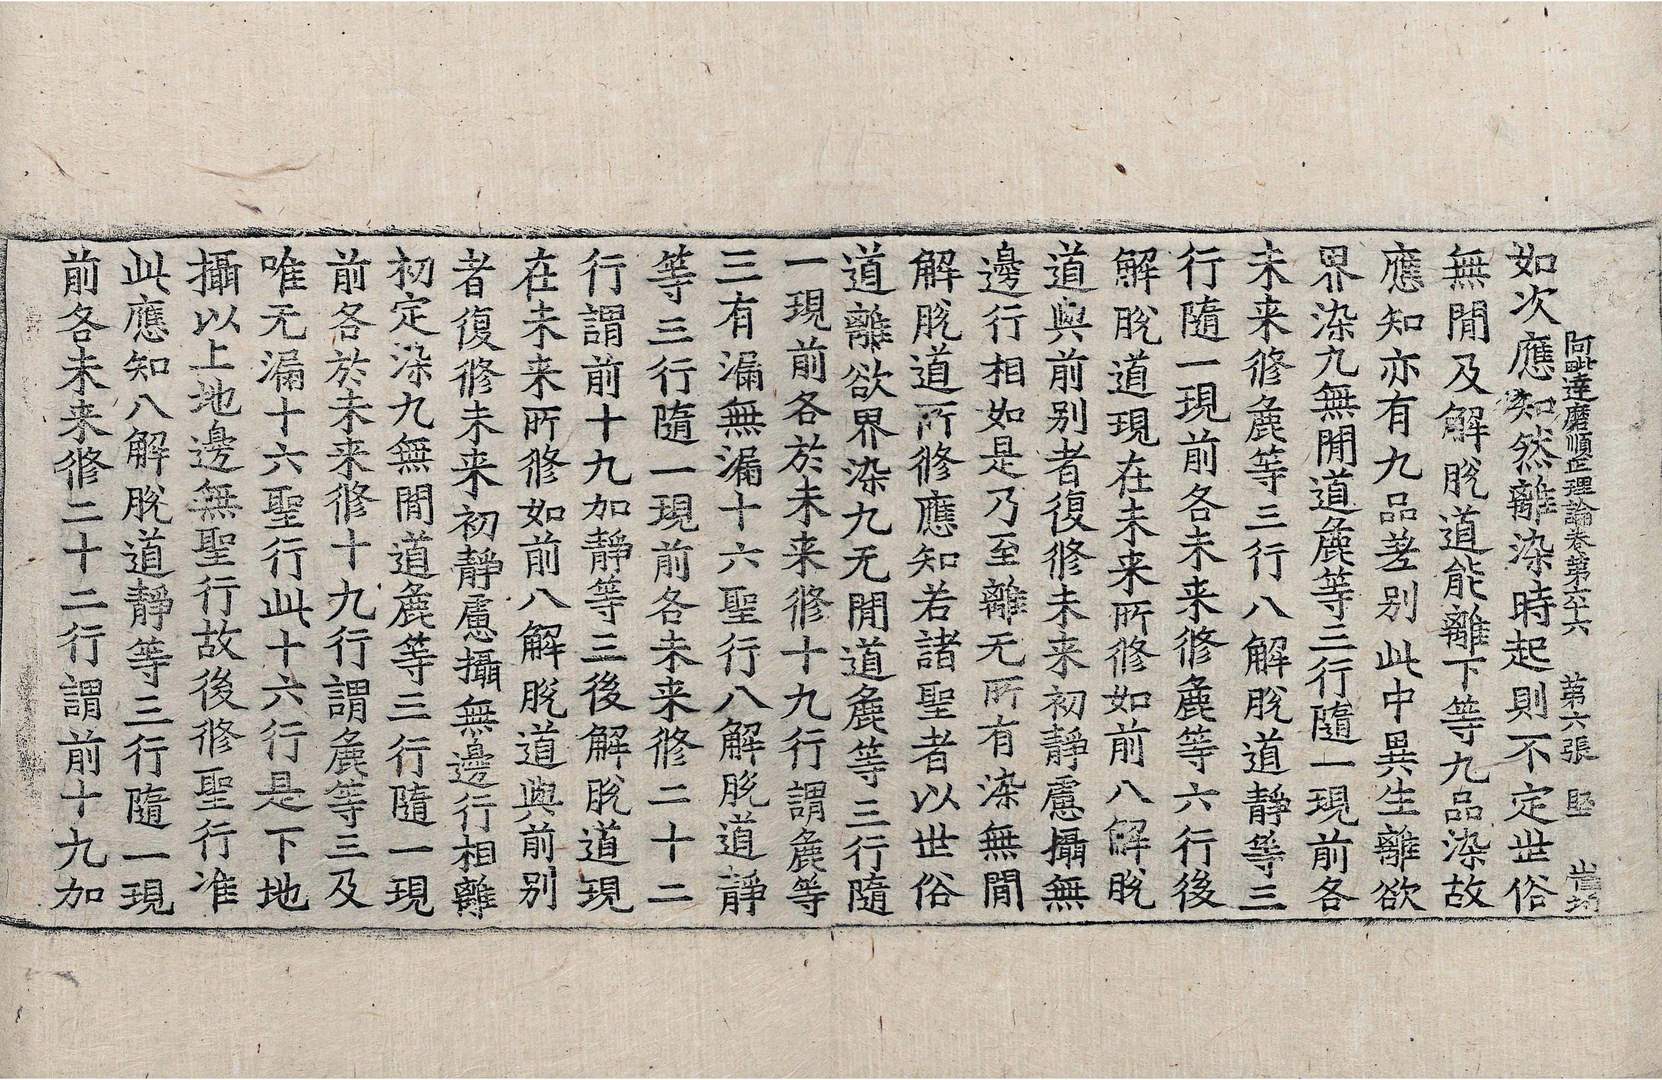 阿毗達磨順正理論卷第六十六 第六張 堅
如次應知然離染時起則不定世俗
無閒及解脫道能離下等九品染故
應知亦有九品差別此中異生離欲
界染九無閒道麁等三行隨一現前各
未来修麁等三行八解脫道靜等三
行隨一現前各未来修麁等六行後
解脫道現在未来所修如前八解脫
道與前別者復修未来初靜慮攝無
邊行相如是乃至離无所有染無閒
解脫道所修應知若諸聖者以世俗
道離欲界染九无閒道麁等三行隨
一現前各於未来修十九行謂麁等
三有漏無漏十六聖行八解脫道靜
等三行隨一現前各未来修二十二
行謂前十九加靜等三後解脫道現
在未来所修如前八解脫道與前別
者復修未来初靜慮攝無邊行相離
初定染九無閒道麁等三行隨一現
前各於未来修十九行謂麁等三及
唯无漏十六聖行此十六行是下地
攝以上地邊無聖行故後修聖行准
此應知八解脫道靜等三行隨一現
前各未来修二十二行謂前十九加